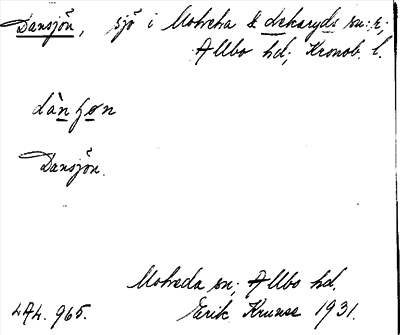 Dansjön, sjö i Moheda & Slätthögs sn:r,
Allbo hd; Kronob. l.
dànʃøn
Dansjön.
Moheda sn; Allbo hd.
LAL. 965. Erik Kruuse 1931.